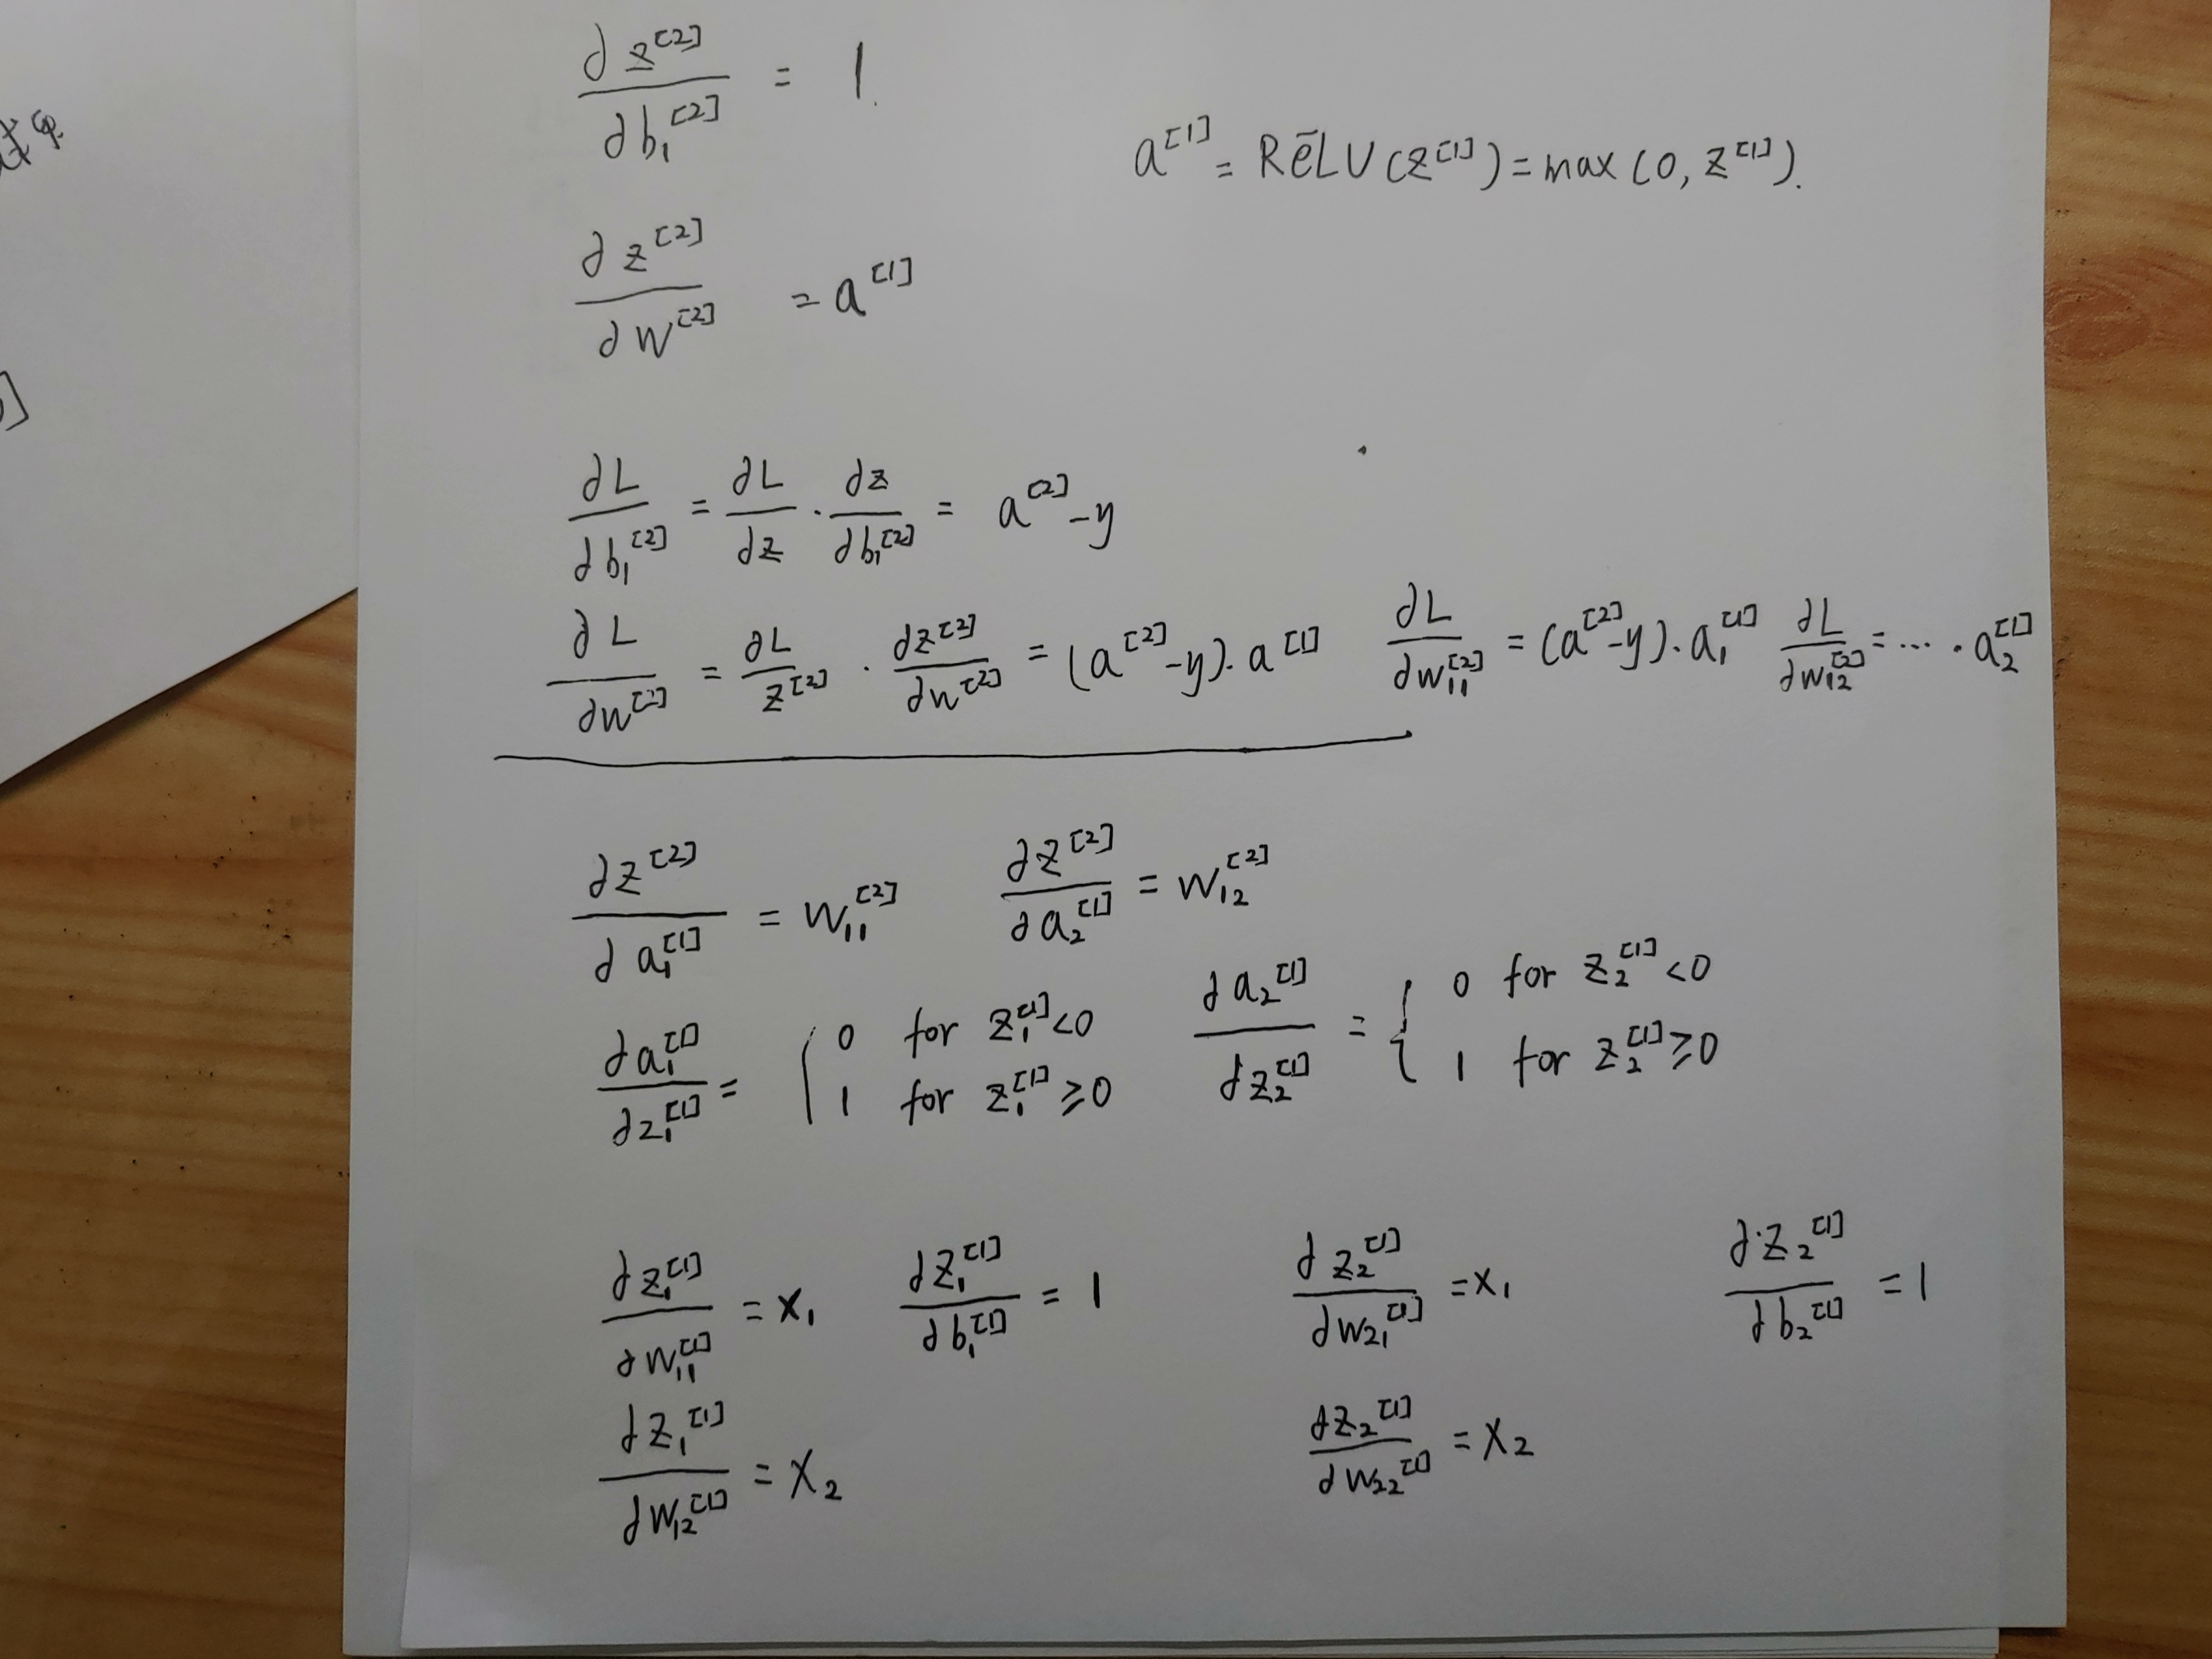 ∂z^[2] / ∂b₁^[2] = 1
∂z^[2] / ∂W^[2] = a^[1]
a^[1] = ReLU(z^[1]) = max(0, z^[1]).
∂L / ∂b₁^[2] = ∂L / ∂z · ∂z / ∂b₁^[2] = a^[2] - y
∂L / ∂W^[2] = ∂L / z^[2] · ∂z^[2] / ∂W^[2] = (a^[2] - y) · a^[1]
∂L / ∂W₁₁^[2] = (a^[2] - y) · a₁^[1]
∂L / ∂W₁₂^[2] = ... · a₂^[1]
∂z^[2] / ∂a₁^[1] = W₁₁^[2]
∂z^[2] / ∂a₂^[1] = W₁₂^[2]
∂a₁^[1] / ∂z₁^[1] = { 0 for z₁^[1] < 0
1 for z₁^[1] ≥ 0
∂a₂^[1] / ∂z₂^[1] = { 0 for z₂^[1] < 0
1 for z₂^[1] ≥ 0
∂z₁^[1] / ∂W₁₁^[1] = x₁
∂z₁^[1] / ∂b₁^[1] = 1
∂z₂^[1] / ∂W₂₁^[1] = x₁
∂z₂^[1] / ∂b₂^[1] = 1
∂z₁^[1] / ∂W₁₂^[1] = x₂
∂z₂^[1] / ∂W₂₂^[1] = x₂